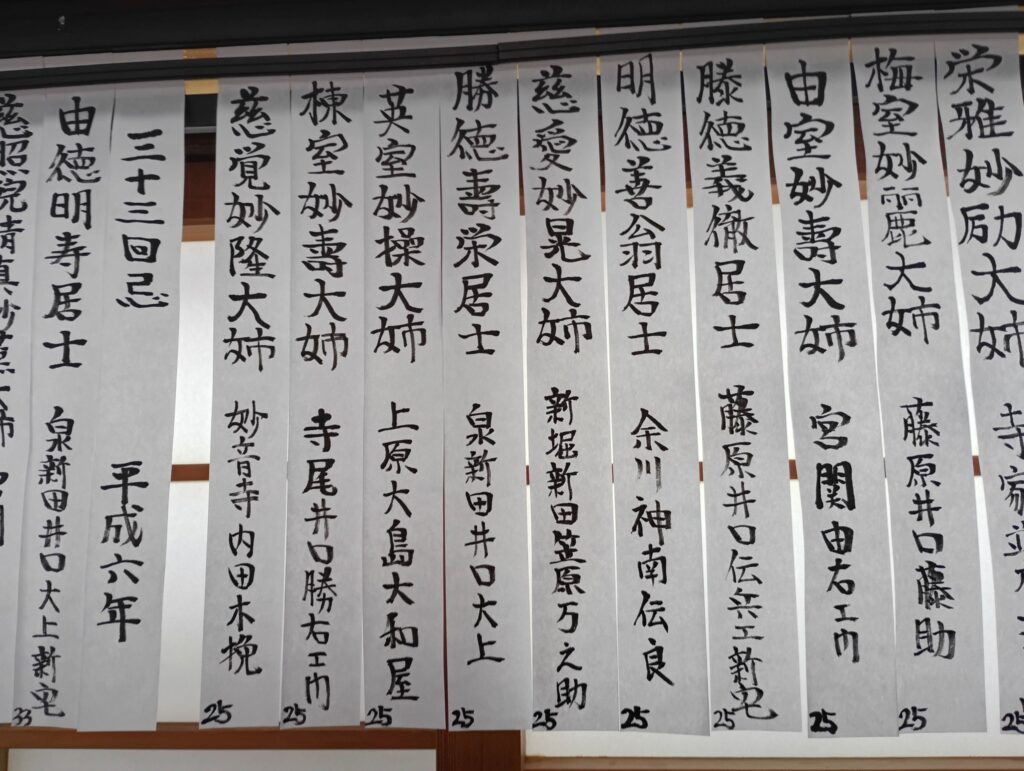 栄雅妙励大姉
梅室妙麗大姉 藤原井口藤助 25
由室妙壽大姉 宮関由右エ門 25
滕徳義徹居士 藤原井口伝兵エ新宅 25
明徳善翁居士 余川神南伝良 25
慈愛妙晃大姉 新堀新田笠原万之助 25
勝徳壽栄居士 泉新田井口大上 25
英室妙操大姉 上原大島大和屋 25
棟室妙壽大姉 寺尾井口勝右エ門 25
慈覚妙隆大姉 妙音寺内田木挽 25
三十三回忌 平成六年
由徳明寿居士 泉新田井口大上新宅 33
慈照院清真妙